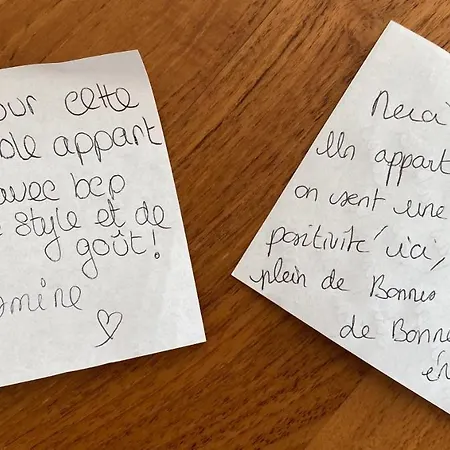 our cette
ble appart
avec bcp
style et de
goût!
mine
Merci
Un appart
on sent une
positivité ici,
plein de Bonnes
de Bonne
én